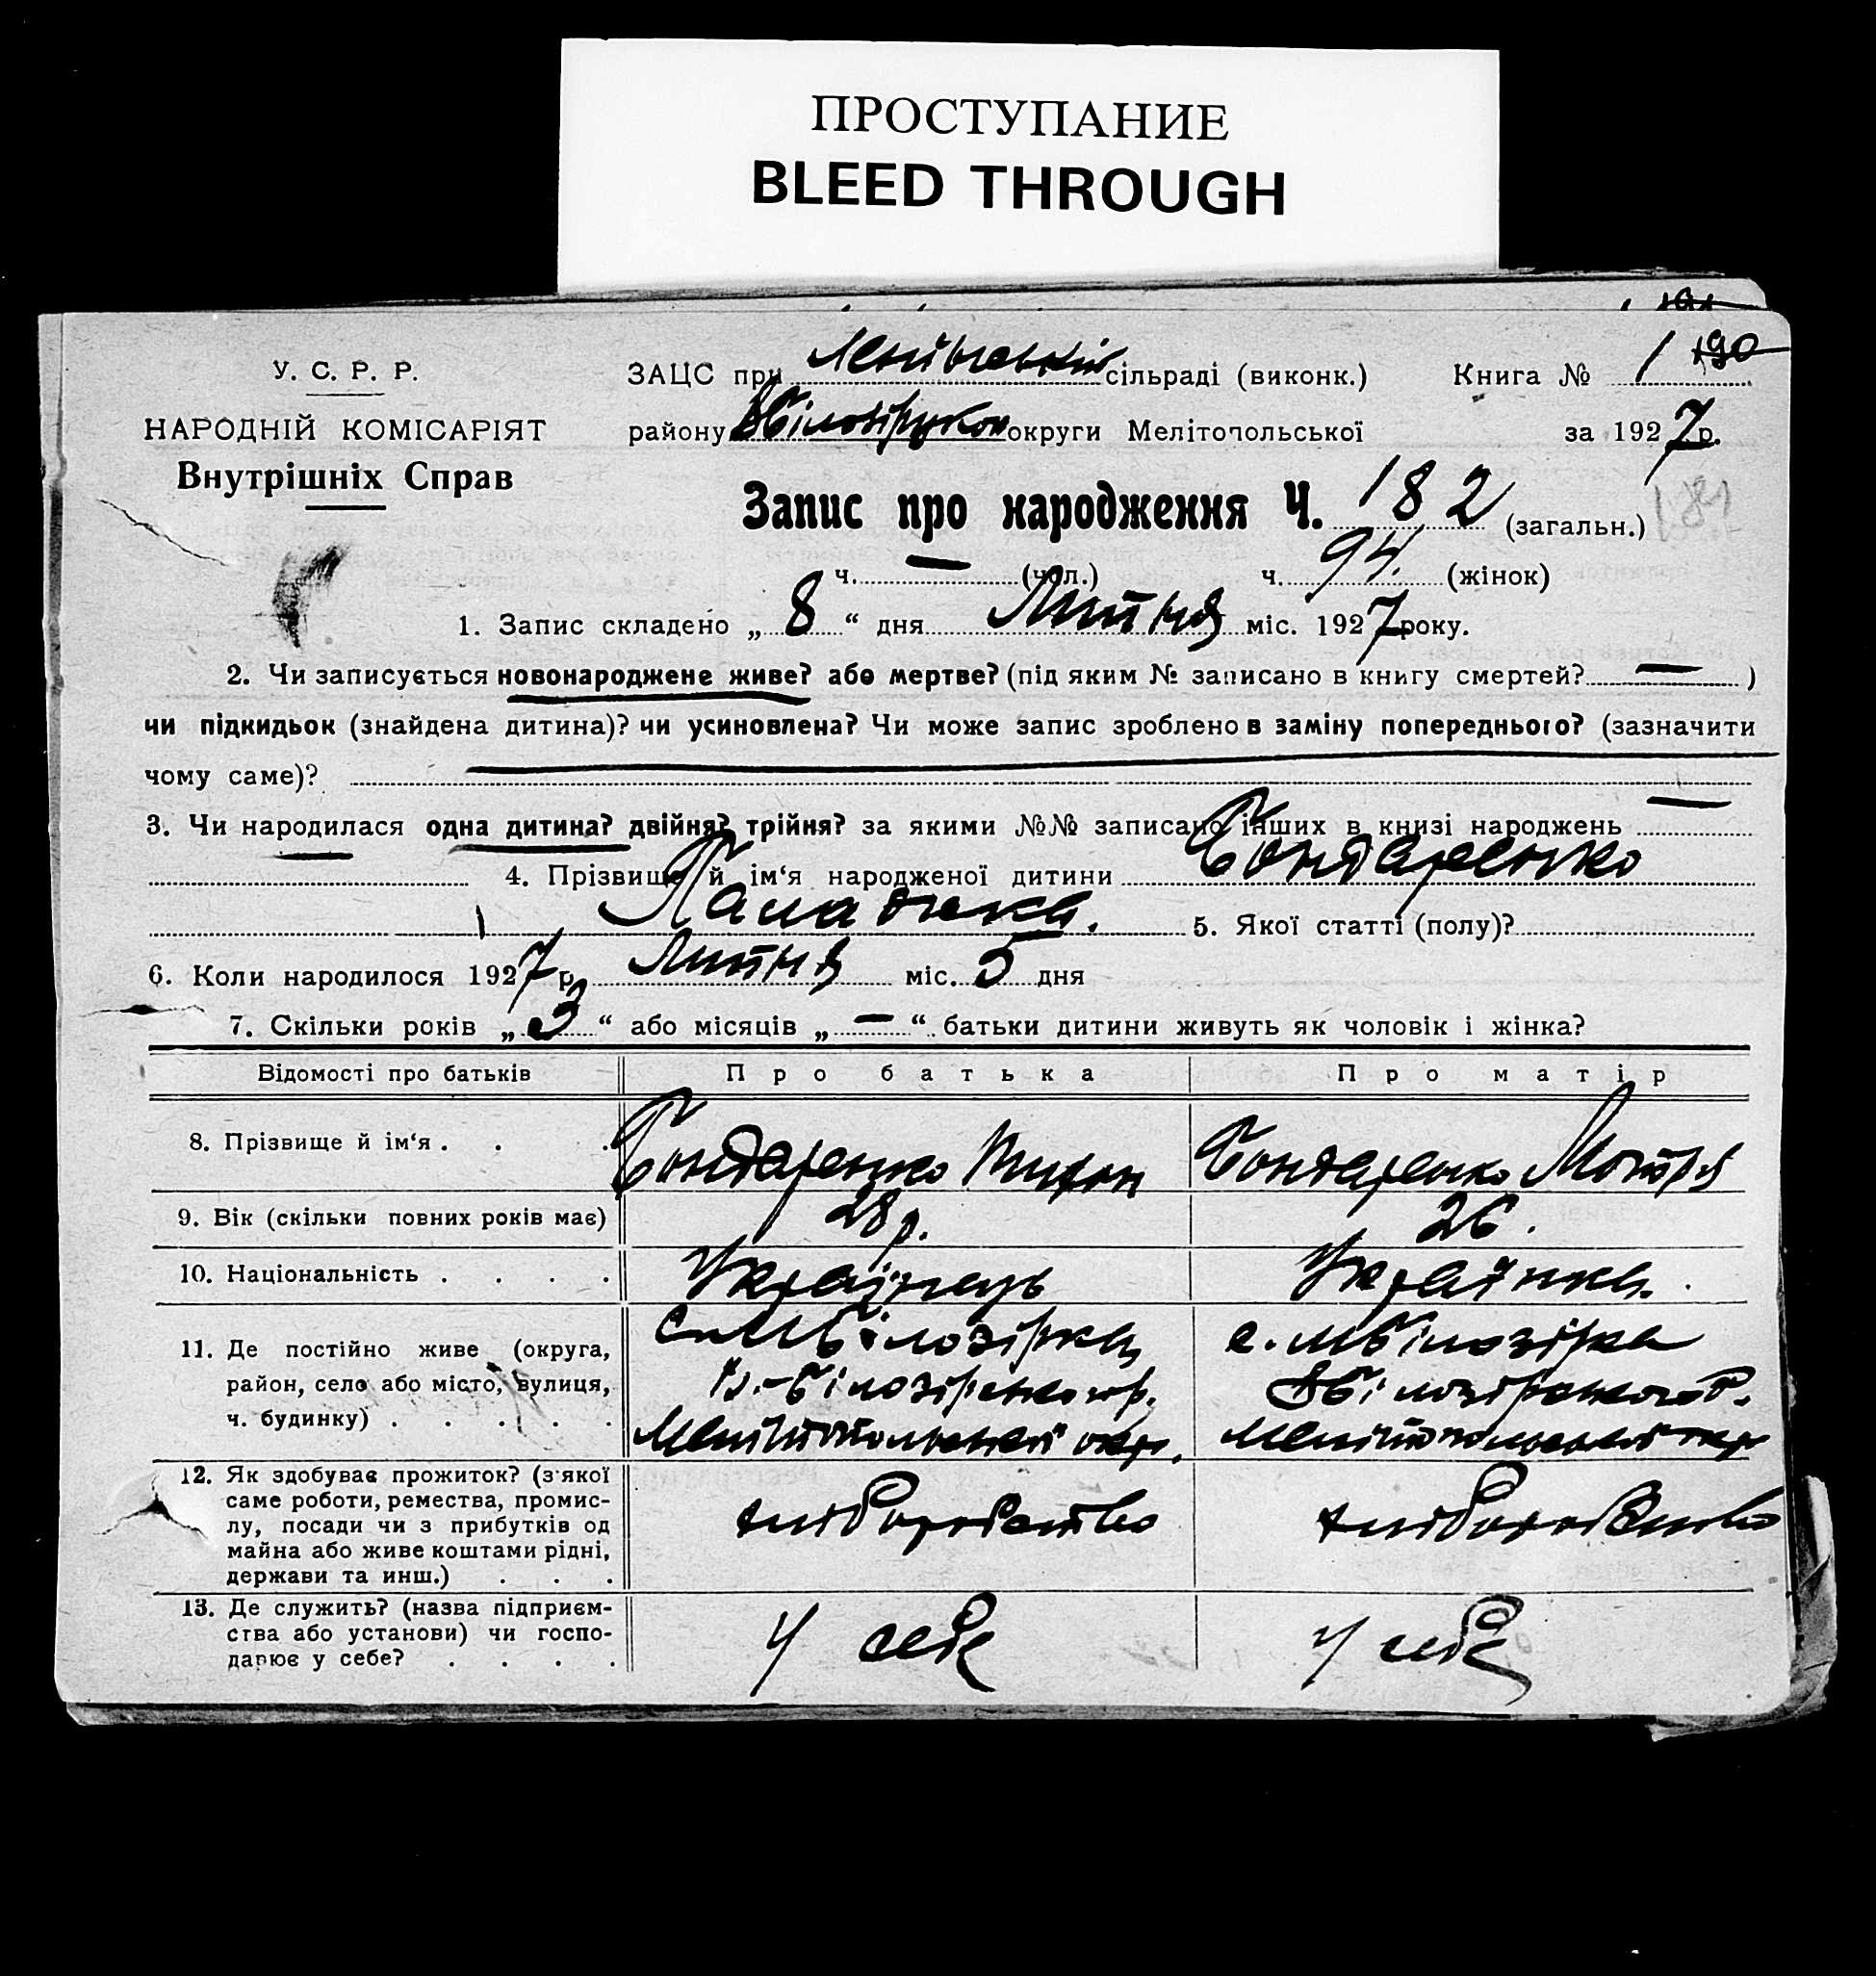 ПРОСТУПАНИЕ
BLEED THROUGH
У. С. Р. Р.
НАРОДНІЙ КОМІСАРІЯТ
Внутрішніх Справ
ЗАЦС при сільраді (виконк.) Книга № 1 190
району округи Мелітопольської за 1927 р.
Запис про народження Ч. 182 (загальн.) 181
ч. — (чол.) ч. 94. (жінок)
1. Запис складено „ 8 “ дня Липня міс. 1927 року.
2. Чи записується новонароджене живе? або мертве? (під яким № записано в книгу смертей? — )
чи підкидьок (знайдена дитина)? чи усиновлена? Чи може запис зроблено в заміну попереднього? (зазначити
чому саме)?
3. Чи народилася одна дитина? двійня? трійня? за якими №№ записано інших в книзі народжень —
4. Прізвище й ім‘я народженої дитини Бондаренко
5. Якої статті (полу)?
6. Коли народилося 1927 р. Липня міс. 5 дня
7. Скільки років „ 3 “ або місяців „ — “ батьки дитини живуть як чоловік і жінка?
Відомості про батьків Про батька Про матір
8. Прізвище й ім‘я . . . Бондаренко Тихон Бондаренко Мотря
9. Вік (скільки повних років має) 28 р. 26.
10. Національність . . . . Українець Українка.
11. Де постійно живе (округа, район, село або місто, вулиця, ч. будинку) . . . . .
с. М Білозірка
В.-Білозірського р.
Мелітопольської окр.
с. М Білозірка
В Білозірського р.
Мелітопольської окр
12. Як здобуває прожиток? (з якої
саме роботи, ремества, промис-
лу, посади чи з прибутків од
майна або живе коштами рідні,
держави та инш.) . . .
хліборобство хліборобство
13. Де служить? (назва підприєм-
ства або установи) чи госпо-
дарює у себе? . . . .
У себе У себе